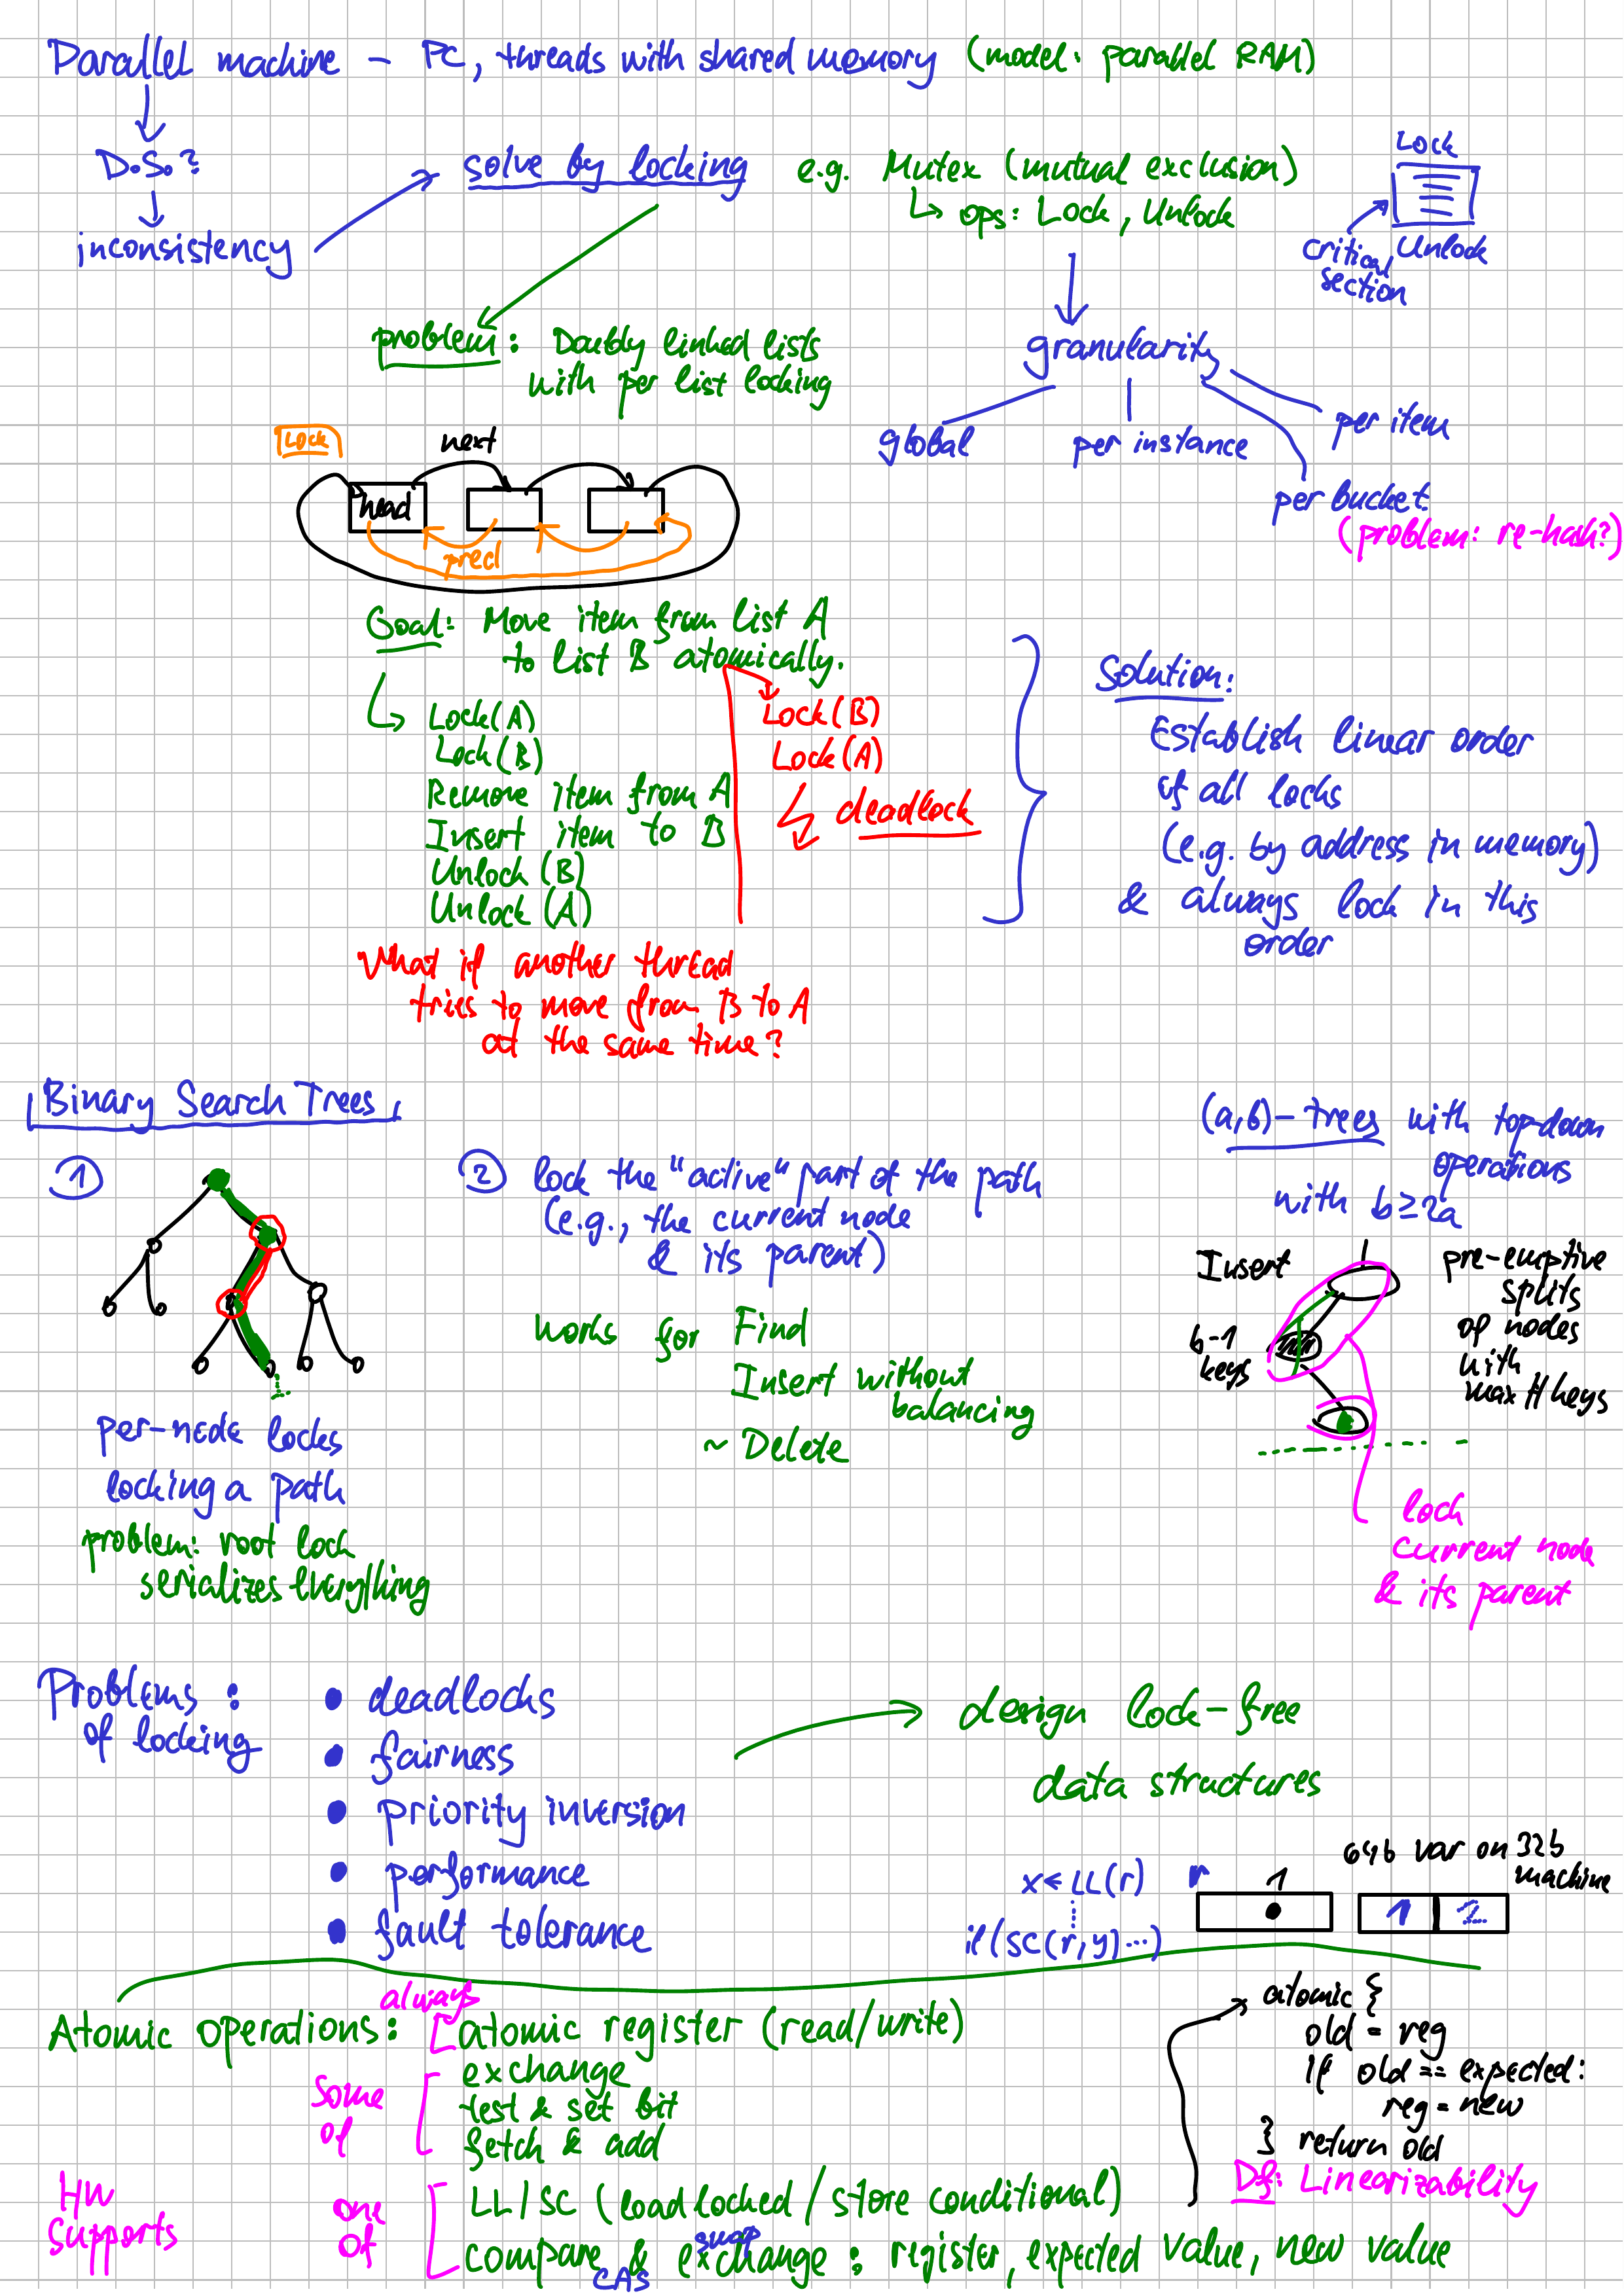 Parallel machine – PC, threads with shared memory (model: parallel RAM)
D.S.?
inconsistency
solve by locking
e.g. Mutex (mutual exclusion)
↳ ops: Lock, Unlock
Lock
Unlock
critical
section
problem: Doubly linked lists
with per list locking
granularity
global
per instance
per item
per bucket
(problem: re-hash?)
Lock
next
head
pred
Goal: Move item from list A
to list B atomically.
Lock(A)
Lock(B)
Remove item from A
Insert item to B
Unlock (B)
Unlock (A)
Lock(B)
Lock(A)
deadlock
What if another thread
tries to move from B to A
at the same time?
Solution:
Establish linear order
of all locks
(e.g. by address in memory)
& always lock in this
order
Binary Search Trees
1
per-node locks
locking a path
problem: root lock
serializes everything
2 lock the "active" part of the path
(e.g., the current node
& its parent)
works for Find
Insert without
balancing
~ Delete
(a,b)-trees with top-down
operations
with b≥2a
Insert
b-1
keys
pre-emptive
splits
of nodes
with
max # keys
lock
current node
& its parent
Problems:
of locking
• deadlocks
• fairness
• priority inversion
• performance
• fault tolerance
design lock-free
data structures
x ← LL(r)
if (SC(r,y)...)
r
1
64b var on 32b
machine
1 2
Atomic operations:
always
atomic register (read/write)
some
of
exchange
test & set bit
fetch & add
HW
supports
one
of
LL/SC (load locked / store conditional)
swap
compare & exchange: register, expected value, new value
CAS
atomic {
old = reg
if old == expected:
reg = new
} return old
Df: Linearizability